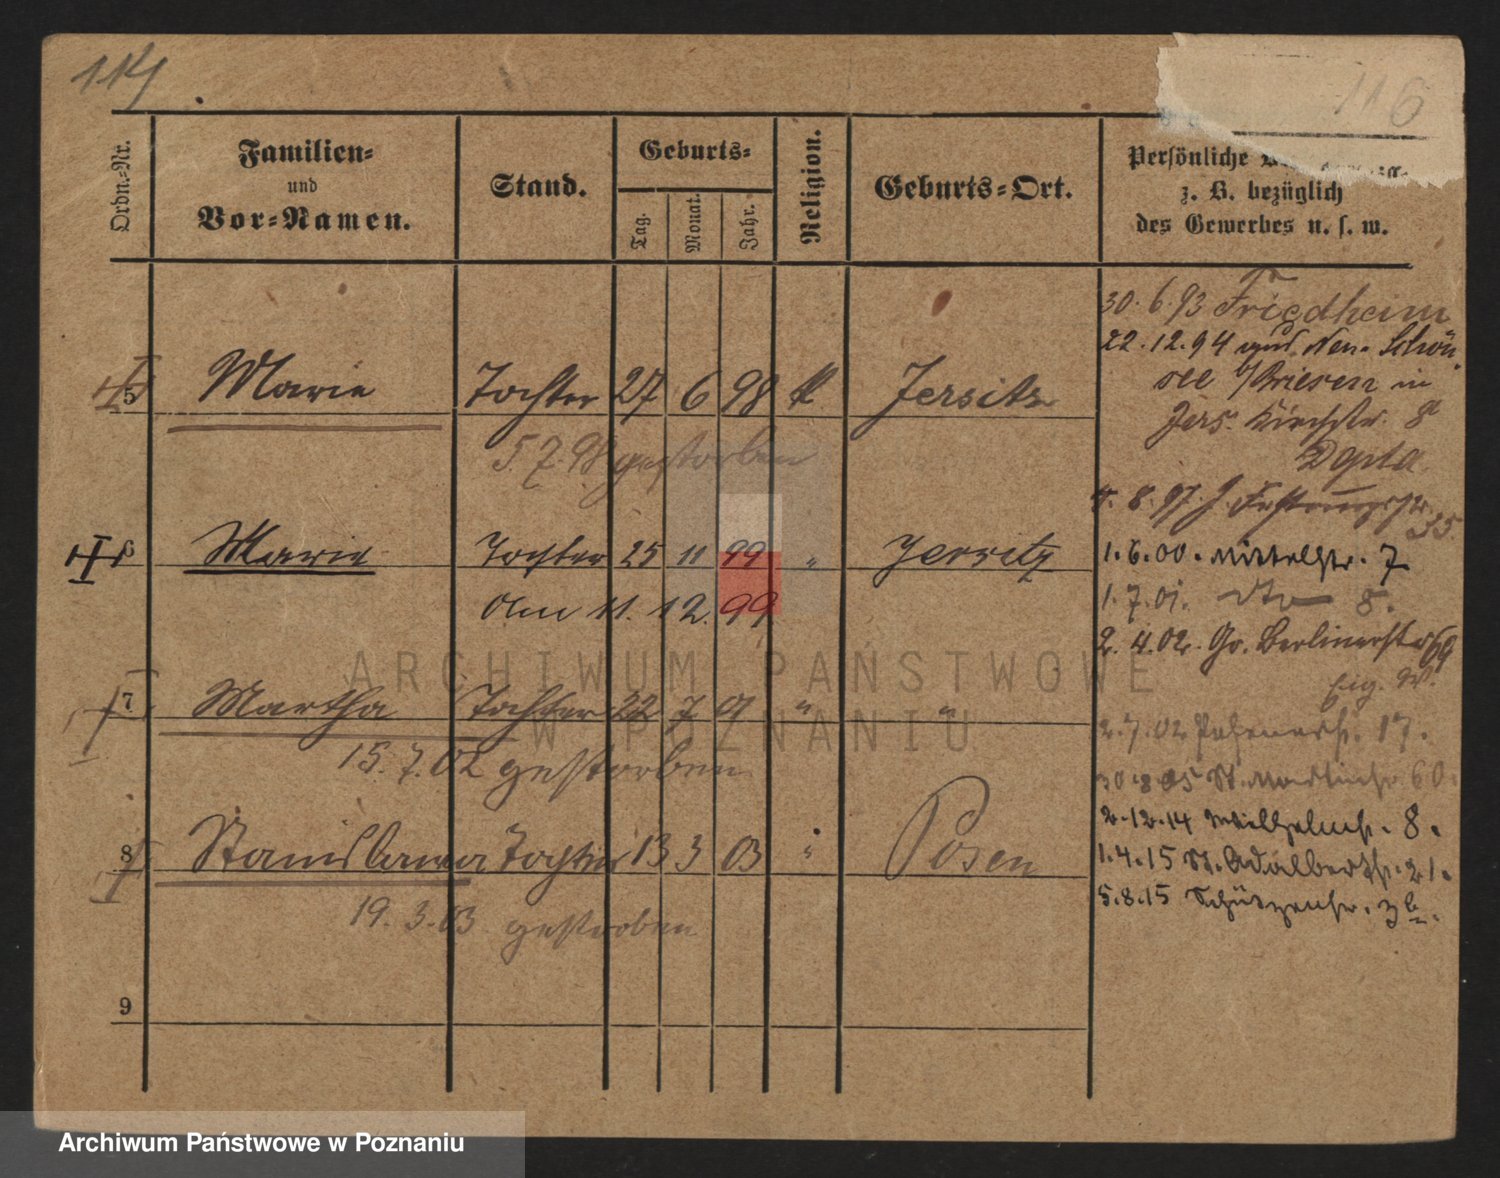 114
116
Ordn.-Nr.
Familien-
und
Vor-Namen.
Stand.
Geburts-
Tag.
Monat.
Jahr.
Religion.
Geburts-Ort.
Persönliche
z. B. bezüglich
des Gewerbes u. s. w.
30. 6. 93 Friedheim
22. 12. 94 aus Neu-Schön-
see b/Briesen in
Jers. Kirchstr. 8
5 Marie Tochter 27 6 98 k Jersitz
5. 7. 98 gestorben
4. 8. 97. J. 35.
6 Marie Tochter 25 11 99 " Jersitz
1. 6. 00. Mittelstr. 7
am 11. 12. 99
1. 7. 01. dto 8.
2. 4. 02. Gr. Berlinerstr 69
7 Martha Tochter 22 7 01 " "
15. 7. 02 gestorben
2. 7. 02 17.
30. 8. 05 St. Martinstr. 60.
2. 12. 14 Wilhelmstr. 8.
8 Stanislawa Tochter 13 3 03 " Posen
1. 4. 15 St. Adalbertstr. 21.
5. 8. 15 Schützenstr. 3b.
19. 3. 03 gestorben
9
ARCHIWUM PAŃSTWOWE
W POZNANIU
Archiwum Państwowe w Poznaniu